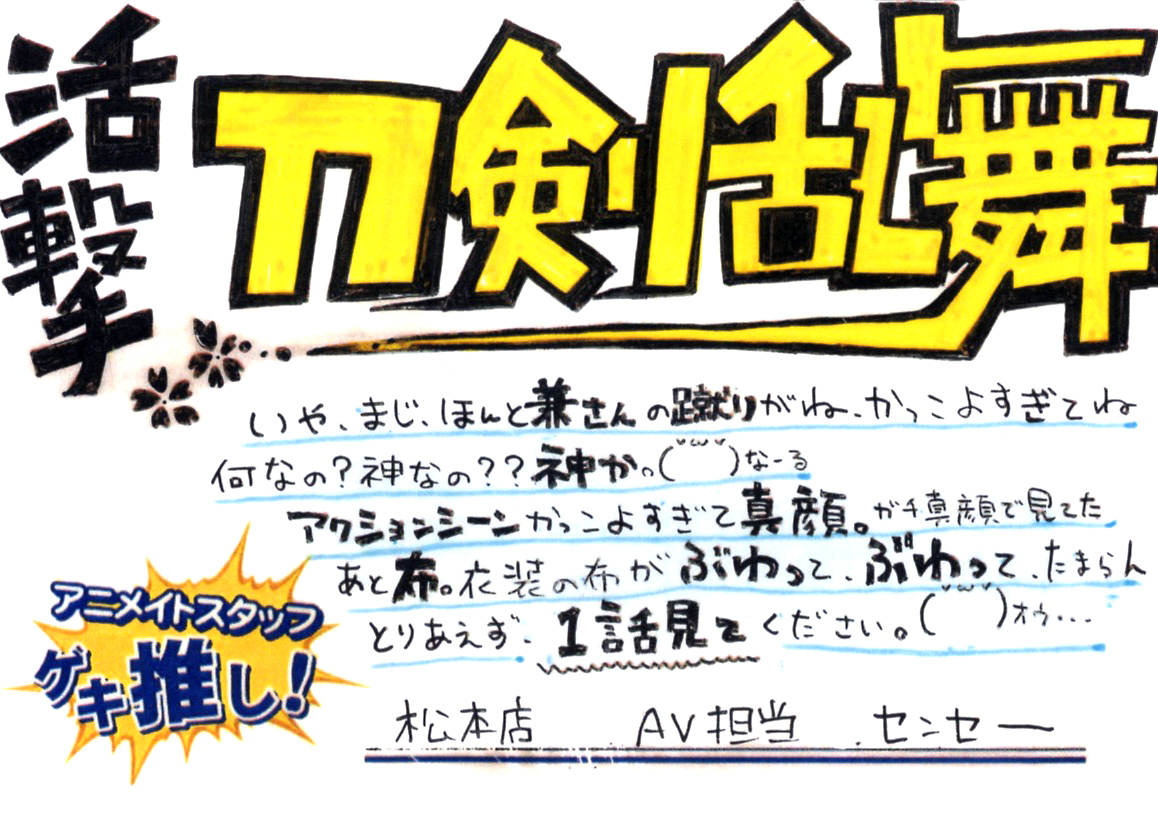 活撃
刀剣乱舞
いや、まじ、ほんと兼さんの蹴りがね、かっこよすぎてね
何なの?神なの??神か。(˘ω˘)なーる
アクションシーンかっこよすぎて真顔。ガチ真顔で見てた
あと布。衣装の布がぶわって、ぶわって、たまらん
とりあえず、1話見てください。(˘ω˘)オゥ…
アニメイトスタッフ
ゲキ推し!
松本店 AV担当 センセー